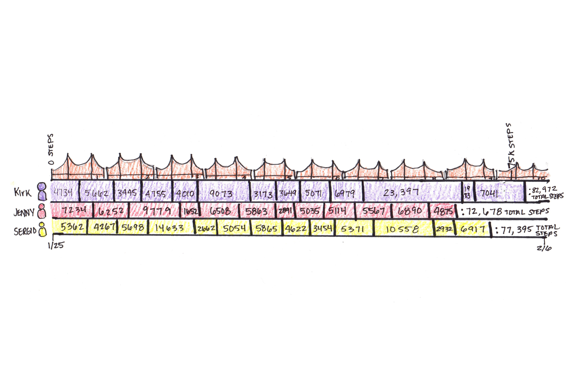 0 STEPS
75K STEPS
Kirk 4734 5662 3445 4755 4070 9073 3173 3649 5071 6979 23,397 7041 : 82,972 TOTAL STEPS
JENNY 7234 6252 9779 1652 6508 5863 5035 5114 5567 6890 4875 : 72,678 TOTAL STEPS
SERGIO 5362 4267 5698 14633 2662 5054 5865 4622 3454 5371 10558 2932 6917 : 77,395 TOTAL STEPS
1/25
2/6